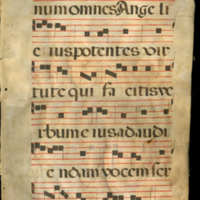 num omnes Angeli
eius potentes vir
tute qui facitis ve
rbum eius ad audi
endam vocem ser